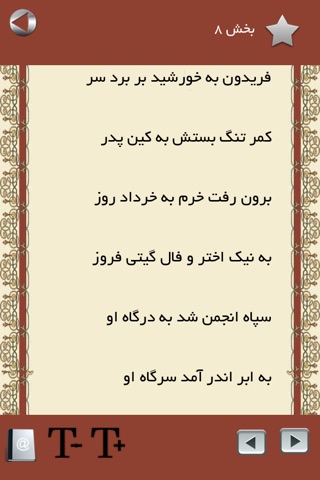 بخش ۸
فریدون به خورشید بر برد سر
کمر تنگ بستش به کین پدر
برون رفت خرم به خرداد روز
به نیک اختر و فال گیتی فروز
سپاه انجمن شد به درگاه او
به ابر اندر آمد سرگاه او
@ T- T+